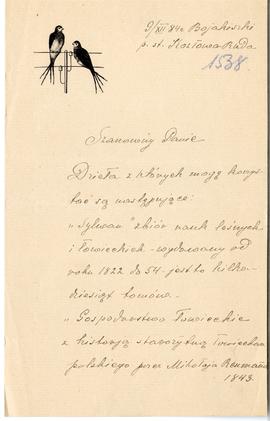 9/XII 84 r. Bojakowski
p. st. Kozłowa Ruda
1538.
Szanowny Panie
Dzieła z których mogę korzys-
tać są następujące:
"Sylwan" zbiór nauk leśnych
i łowieckich - wydawany od
roku 1822 do 54 - jest to kilka-
dziesiąt tomów.
"Gospodarstwo Łowieckie
z historyą starożytną łowiectwa
polskiego przez Mikołaja Reumanna
1845.